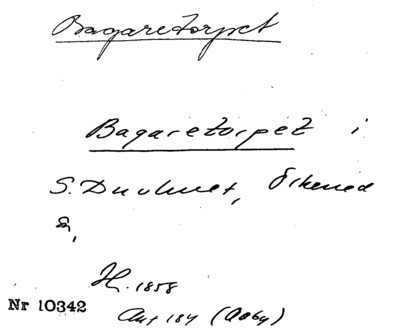 Bagaretorpet
Bagaretorpet i
S. Duvhult, Ökened
sn,
H. 1858
Nr 10342
Ant 184 (Aaby)